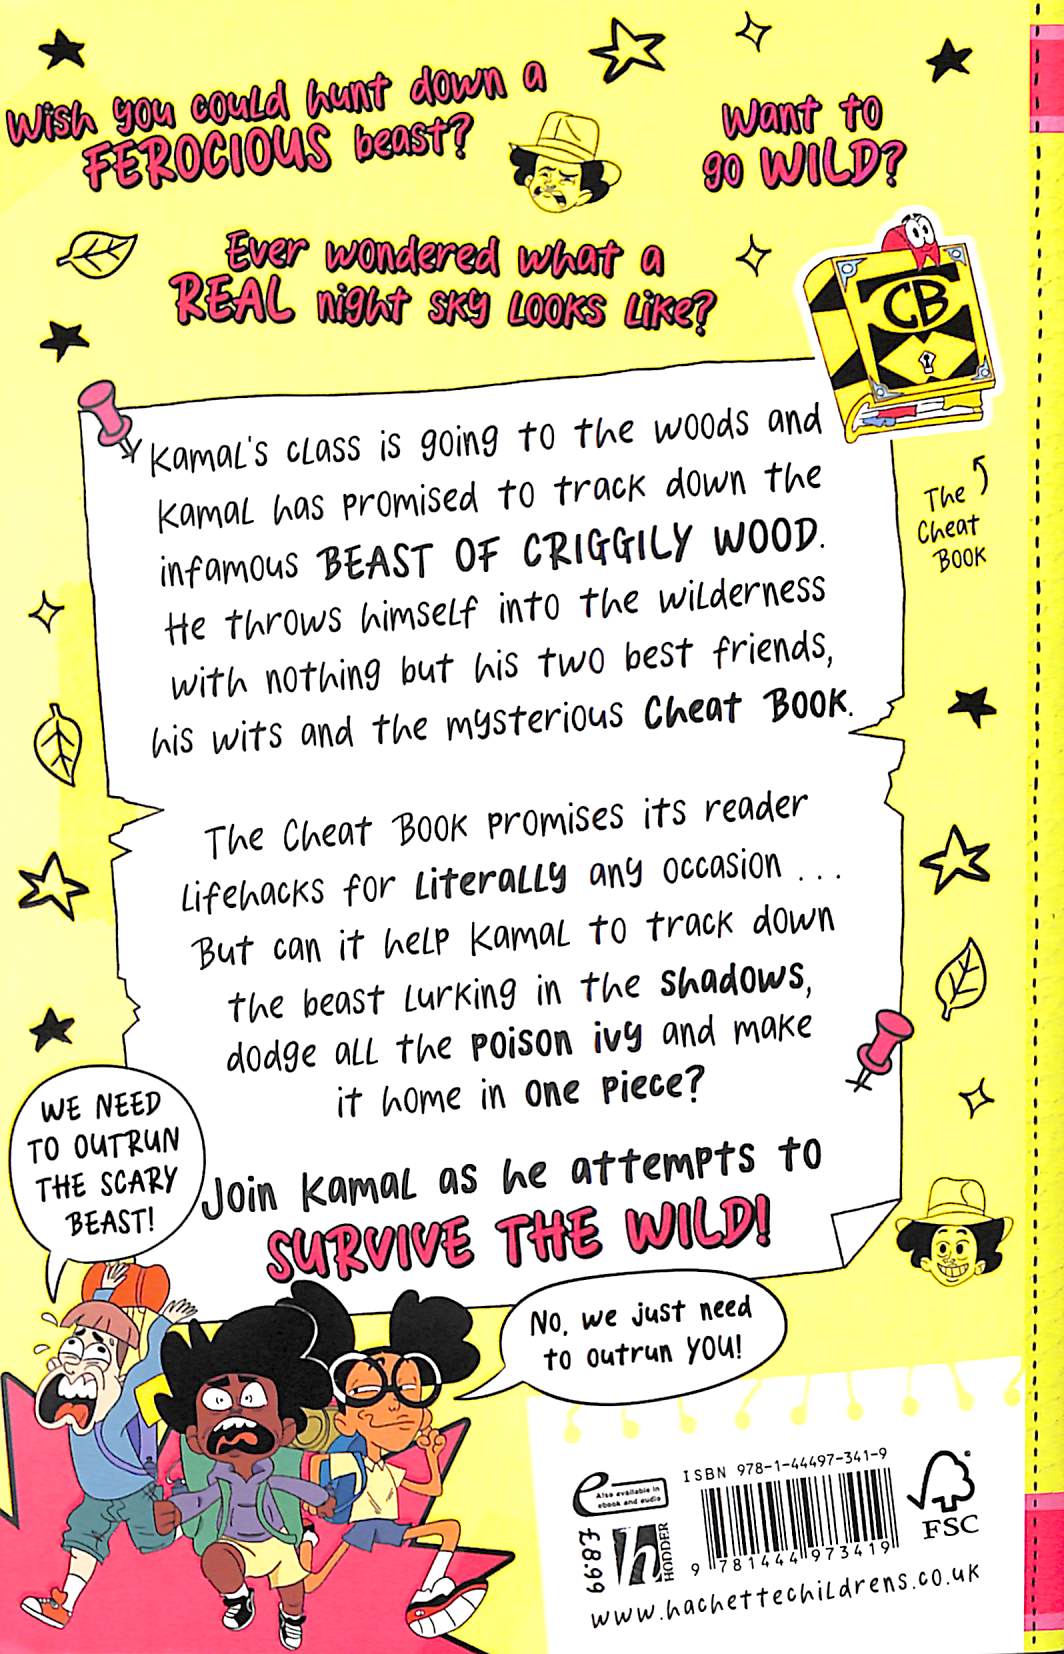 Wish you could hunt down a
FEROCIOUS beast?
Want to
go WILD?
Ever wondered what a
REAL night sky looks like?
CB
The
Cheat
Book
Kamal's class is going to the woods and
Kamal has promised to track down the
infamous BEAST OF CRIGGILY WOOD.
He throws himself into the wilderness
with nothing but his two best friends,
his wits and the mysterious Cheat Book.
The Cheat Book promises its reader
lifehacks for literally any occasion ...
But can it help Kamal to track down
the beast lurking in the shadows,
dodge all the poison ivy and make
it home in one piece?
Join Kamal as he attempts to
SURVIVE THE WILD!
WE NEED
TO OUTRUN
THE SCARY
BEAST!
No, we just need
to outrun YOU!
e
Also available in
ebook and audio
£8.99
h
HODDER
ISBN 978-1-44497-341-9
9 781444 973419
FSC
www.hachettechildrens.co.uk